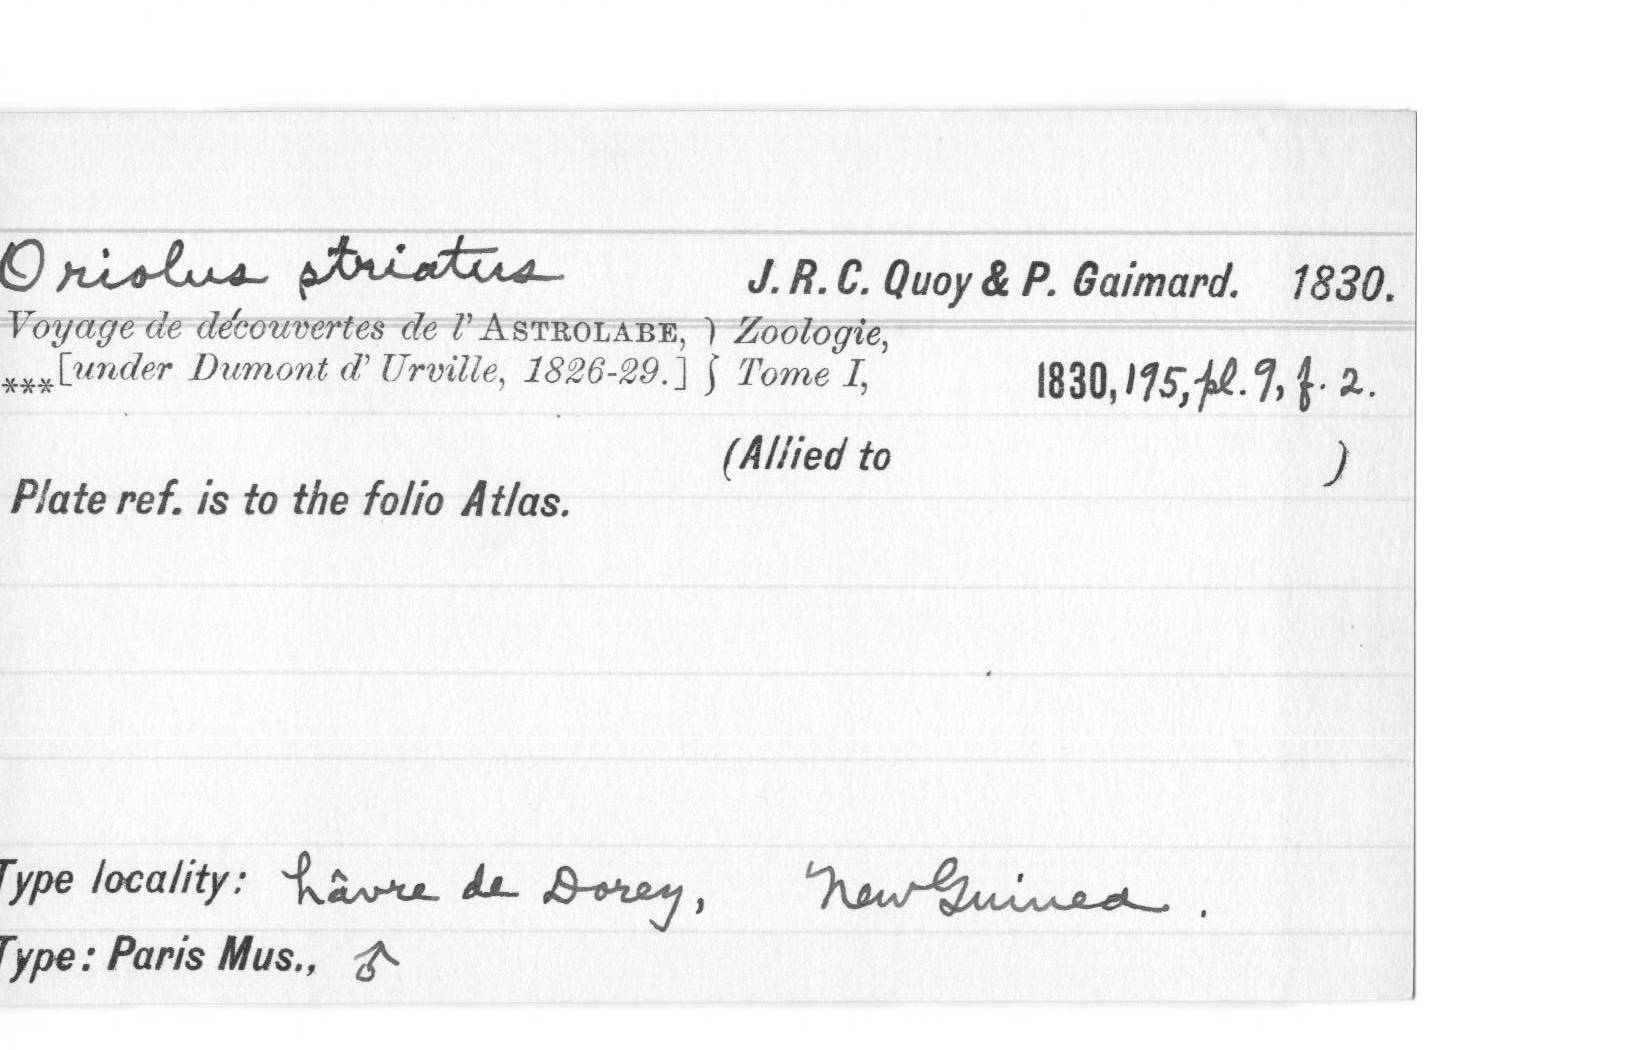 Oriolus striatus J. R. C. Quoy & P. Gaimard. 1830.
Voyage de découvertes de l' ASTROLABE, } Zoologie,
***[under Dumont d' Urville, 1826-29.] } Tome I, 1830, 195, pl. 9, f. 2.
(Allied to )
Plate ref. is to the folio Atlas.
Type locality: hâvre de Dorey, New Guinea.
Type: Paris Mus., ♂